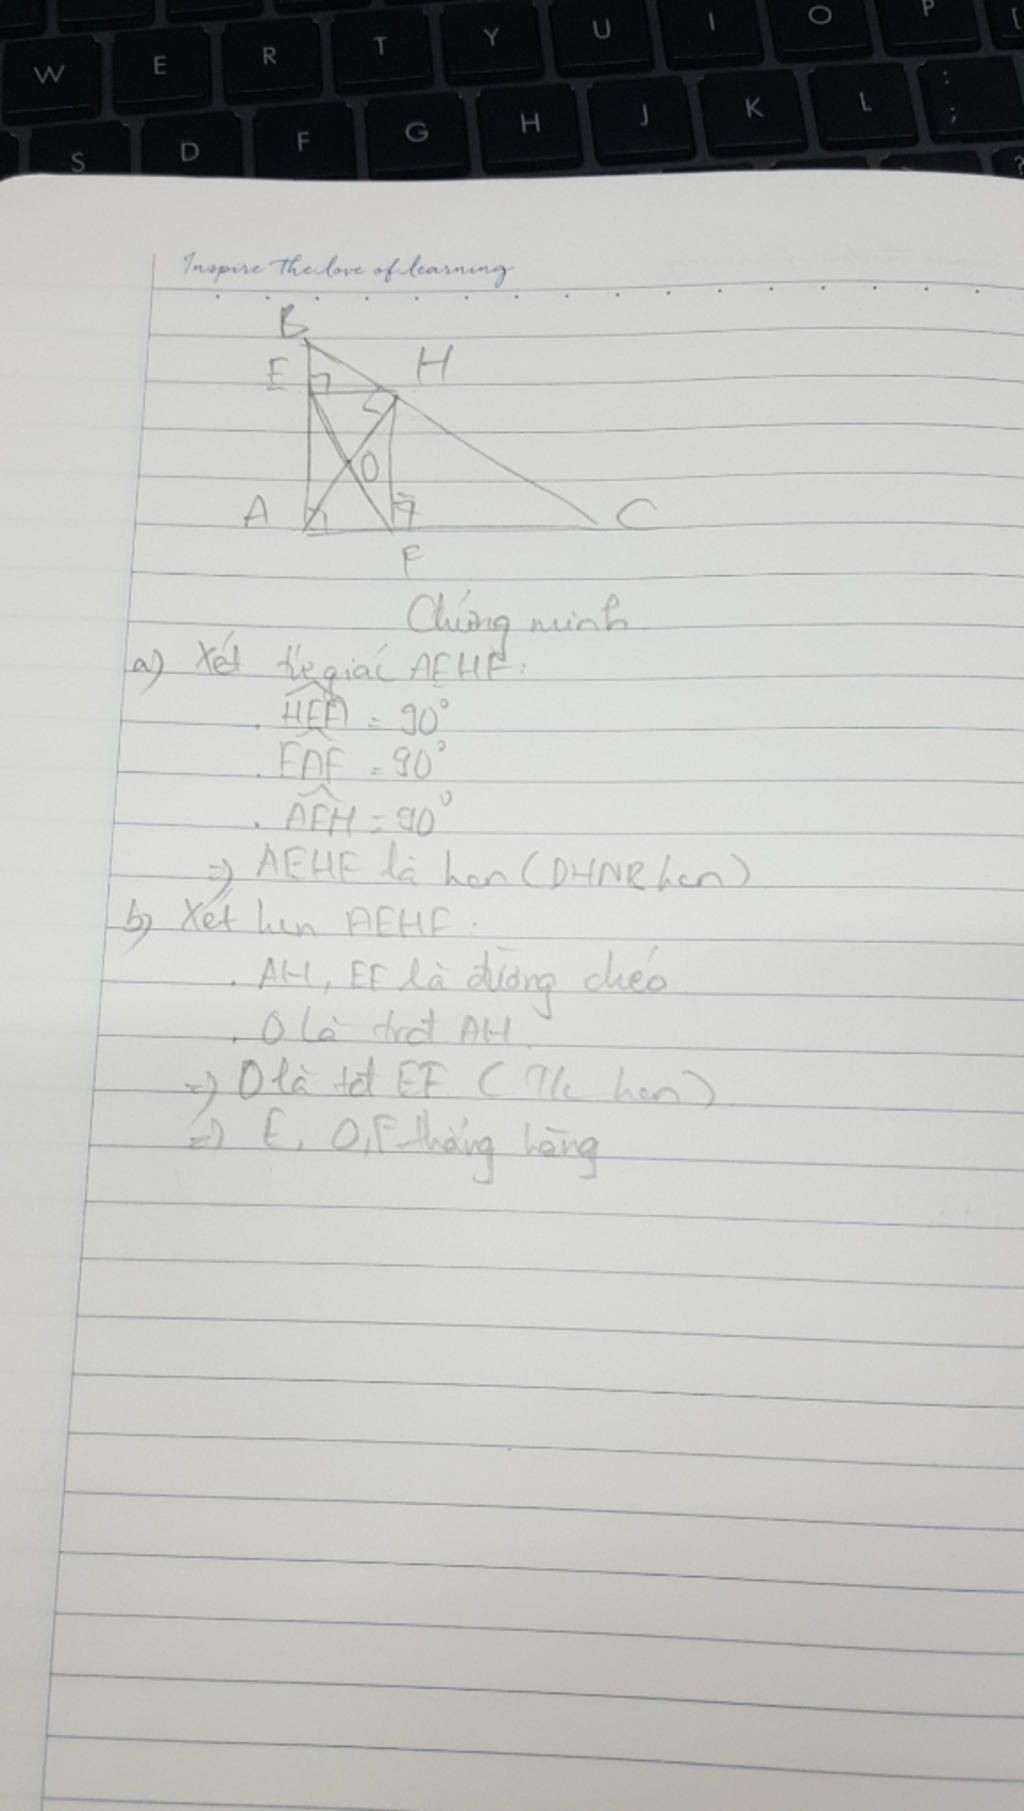 W E R T Y U I O P [
S D F G H J K L : ;
?
Inspire the love of learning
B
E H
O
A C
F
Chứng minh
a) Xét tứ giác AEHF:
. HEA = 90°
. EAF = 90°
. AFH = 90°
=> AEHF là hcn (DHNB hcn)
b) Xét hcn AEHF:
. AH, EF là đường chéo
. O là trđ AH
=> O là tđ EF (T/c hcn)
=> E, O, F thẳng hàng